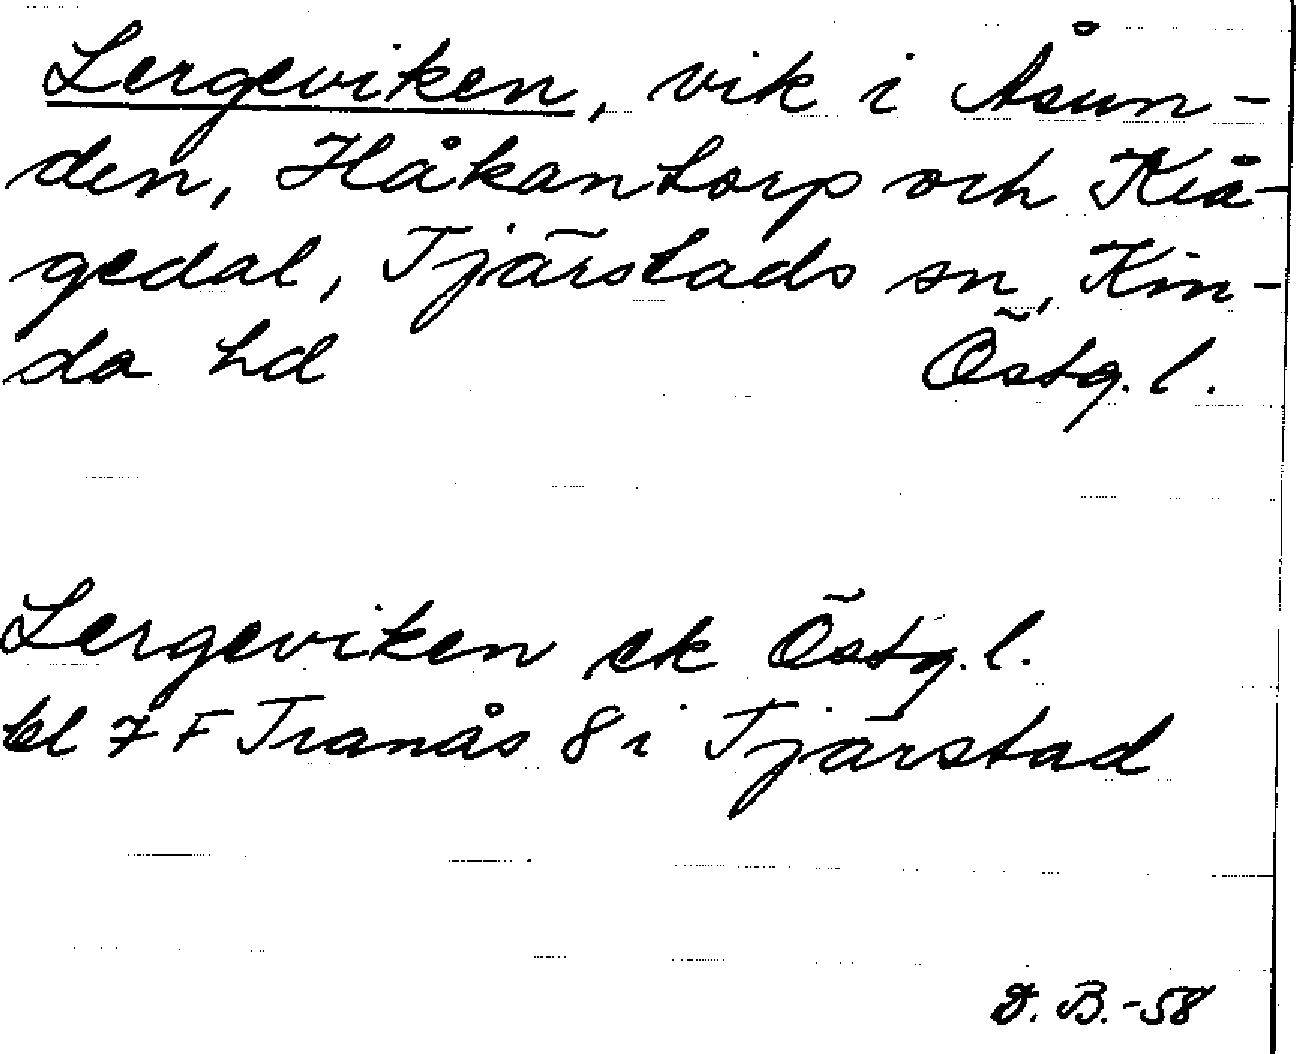 Lergeviken, vik i Åsun-
den, Håkantorp och Krå-
gedal, Tjärstads sn, Kin-
da hd Östg. l.
Lergeviken ek Östg. l.
bl 7 F Tranås 8 i Tjärstad
D. B. -58